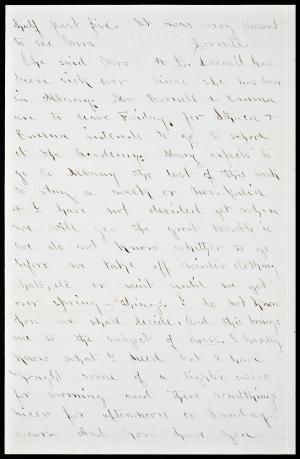 half past five. It was very pleasant
to see Mrs Cornell.
She said Mrs A. B. Cornell has
been sick ever since she has been
in Albany. Mr Cornell & Emma
are to leave Friday, for Ithaca &
Emma intends to go to school
at the Academy. Mary expects to
go to Albany the last of this week
to stay a week or two. Julia
& I have not decided yet when
we will go. the great trouble is
we do not know whether to go
before we take off winter clothing
hats, etc or wait until we get
our spring things. I do not know
how we shall decide. And this brings
me to the subject of dress. I hardly
know what I need but I have
thought some of a lighter calico
for morning and then something
nicer for afternoon or Sunday
wear and you have you